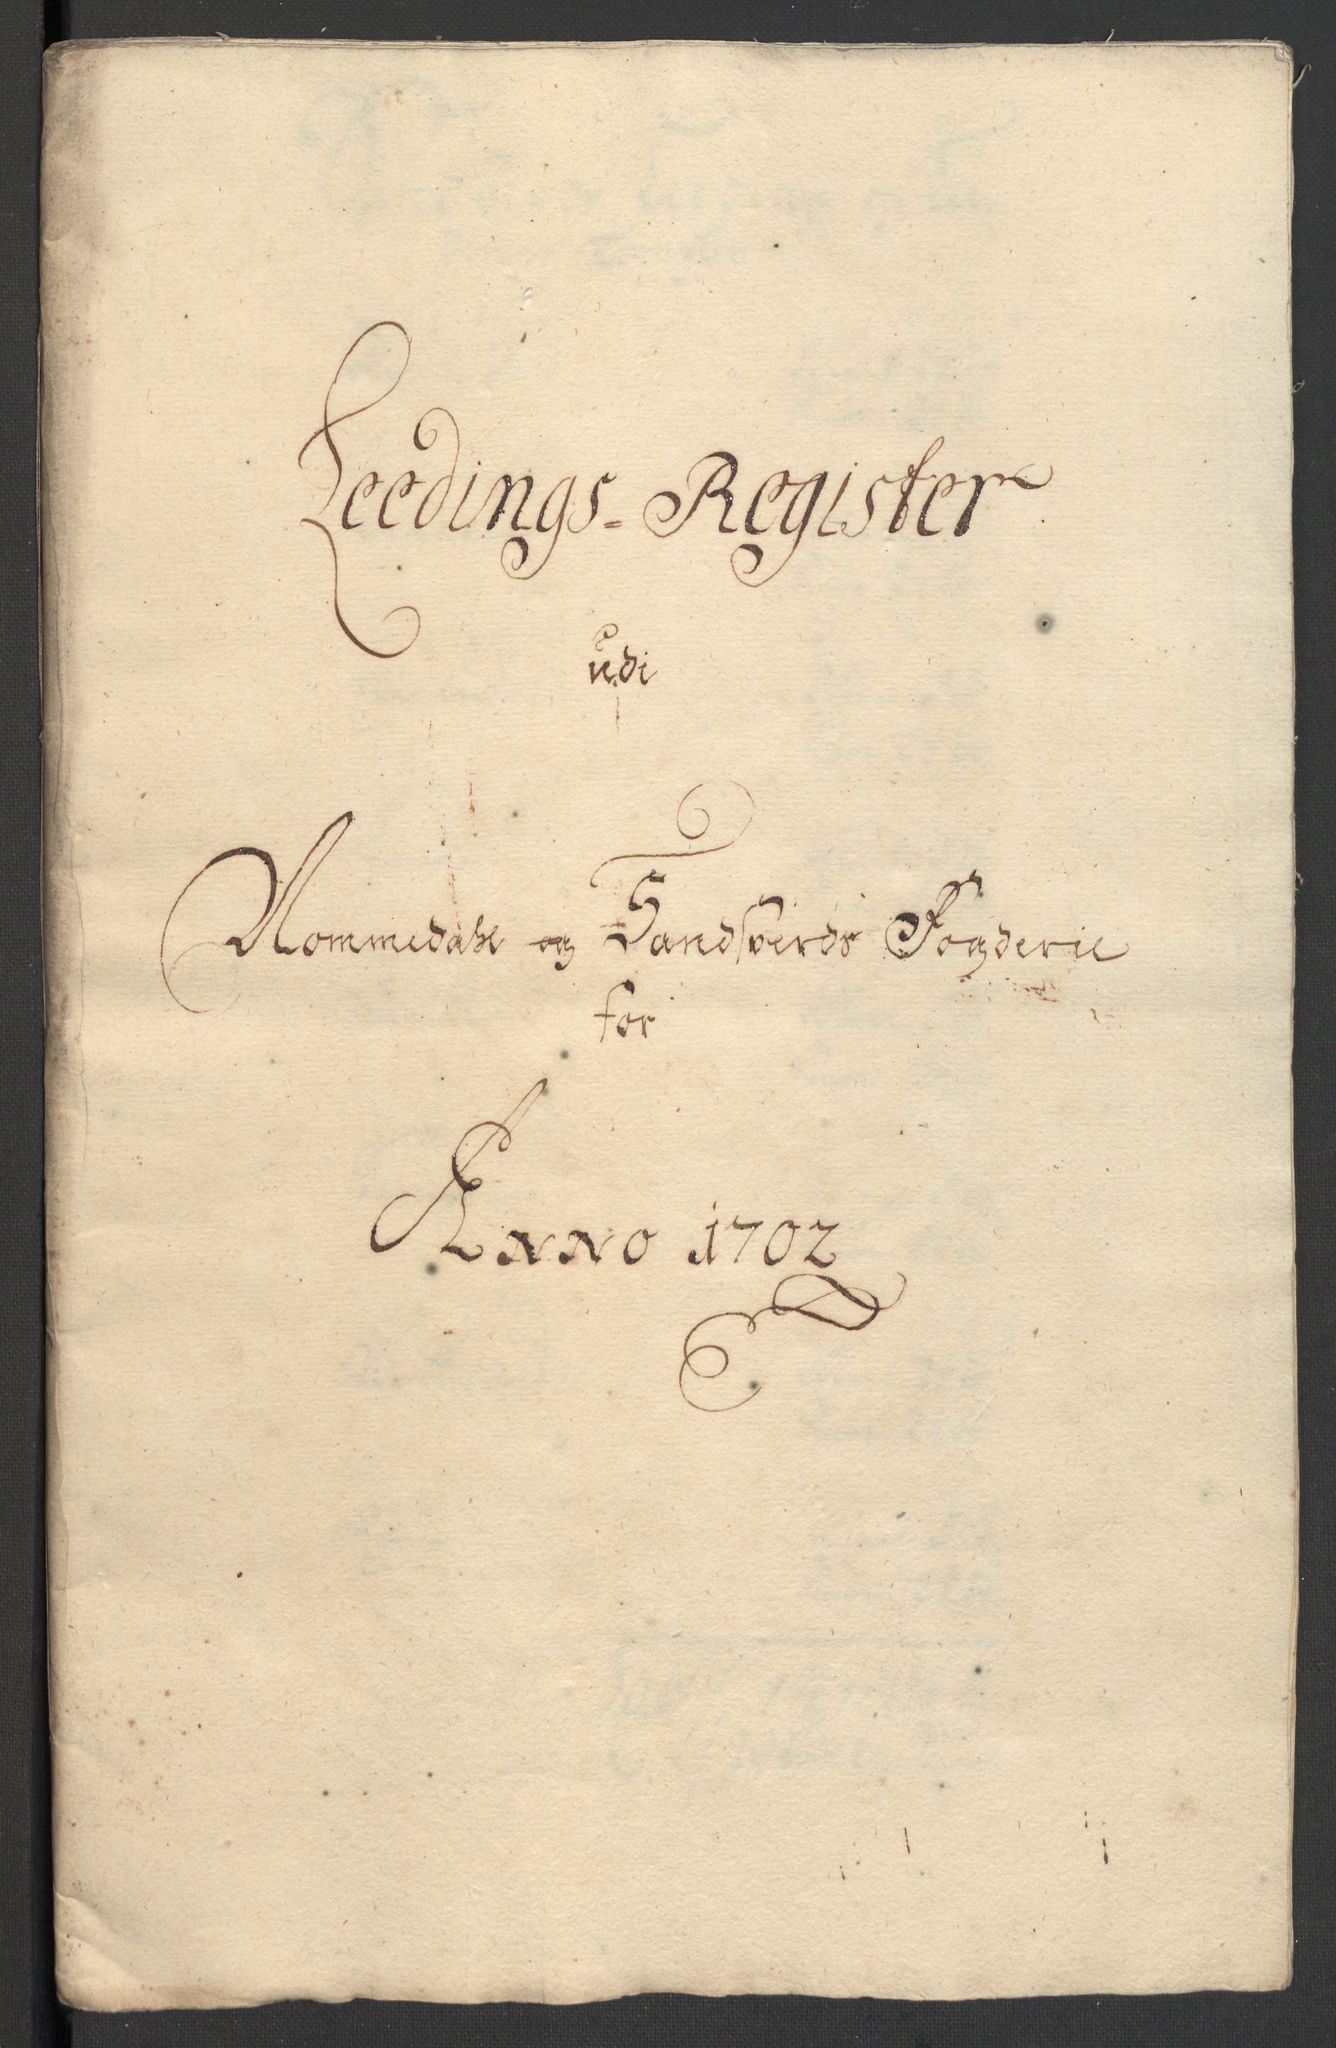 Leedings-Register
udi
Nommedals og Sandsverds Fogderie
for
Anno 1702